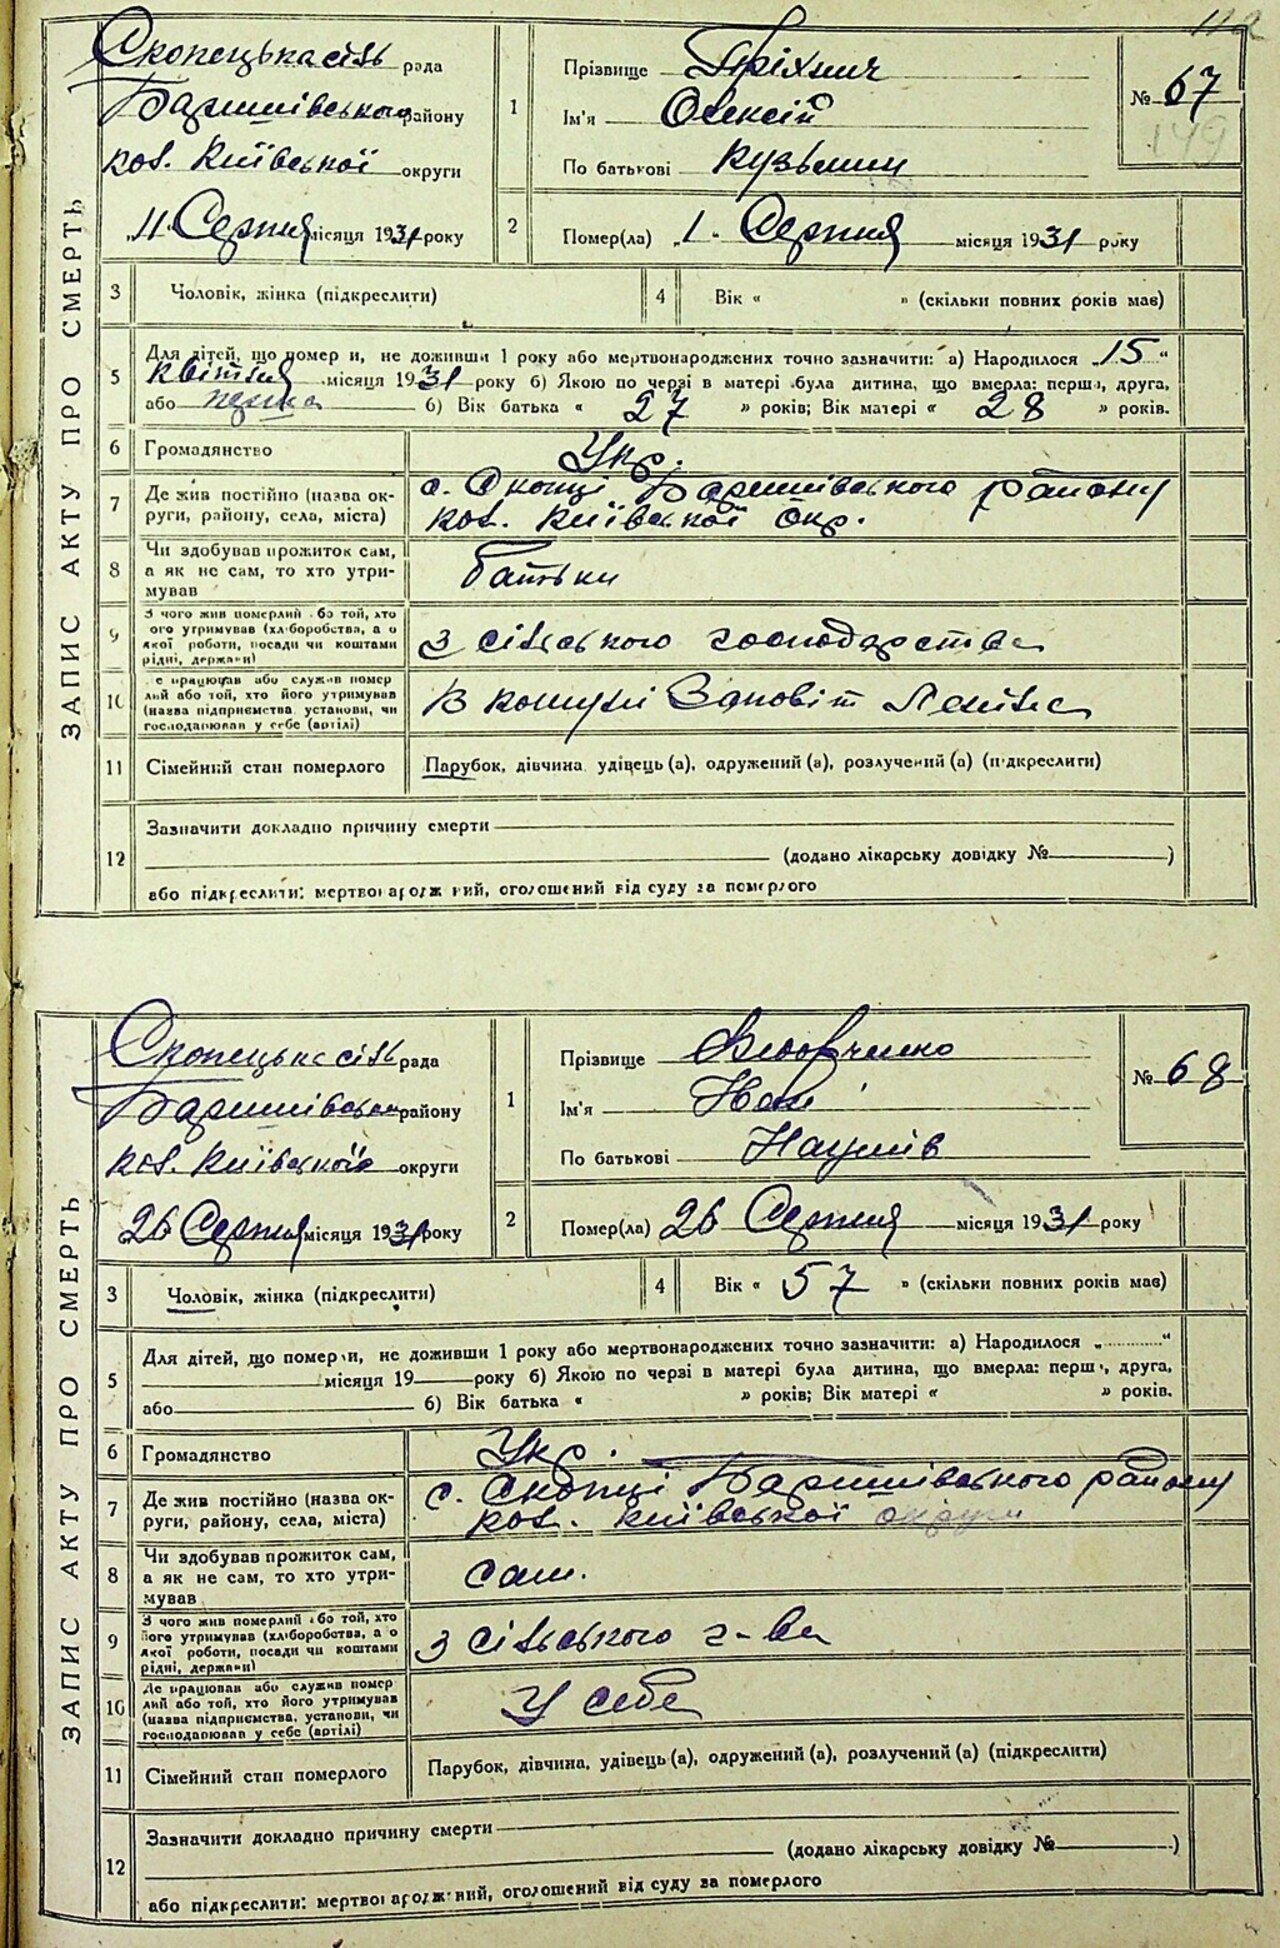 ЗАПИС АКТУ ПРО СМЕРТЬ
Скопецька сіль рада
Баришівського району
кол. Київської округи
„11“ Серпня місяця 1931 року
1
Прізвище
Ім'я Олексій
По батькові Кузьмич
№ 67
149
2
Помер(ла) „1“ Серпня місяця 1931 року
3 Чоловік, жінка (підкреслити)
4 Вік « » (скільки повних років має)
5 Для дітей, що померли, не доживши 1 року або мертвонароджених точно зазначити: а) Народилося „15“
Квітня місяця 1931 року б) Якою по черзі в матері була дитина, що вмерла: перша, друга,
або перша 6) Вік батька « 27 » років; Вік матері « 28 » років.
6 Громадянство Укр.
7 Де жив постійно (назва ок-
руги, району, села, міста)
с. Скопці Баришівського району
кол. Київської окр.
8 Чи здобував прожиток сам,
а як не сам, то хто утри-
мував
Батьки
9 З чого жив померлий або той, хто
його утримував (хліборобства, а о
якої роботи, посади чи коштами
рідні, держави)
З сільського господарства
10 Де працював або служив помер
лий або той, хто його утримував
(назва підприємства, установи, чи
господарював у себе (артілі)
В комуні Заповіт Леніна
11 Сімейний стан померлого Парубок, дівчина, удівець (а), одружений (а), розлучений (а) (підкреслити)
12 Зазначити докладно причину смерти
(додано лікарську довідку № )
або підкреслити: мертвонароджений, оголошений від суду за померлого
ЗАПИС АКТУ ПРО СМЕРТЬ
Скопецька сіль рада
Баришівськ району
кол. Київської округи
26 Серпня місяця 1931 року
1
Прізвище Вдовченко
Ім'я
По батькові Наумів
№ 68
2
Помер(ла) 26 Серпня місяця 1931 року
3 Чоловік, жінка (підкреслити)
4 Вік « 57 » (скільки повних років має)
5 Для дітей, що померли, не доживши 1 року або мертвонароджених точно зазначити: а) Народилося „ “
місяця 19 року б) Якою по черзі в матері була дитина, що вмерла: перша, друга,
або 6) Вік батька « » років; Вік матері « » років.
6 Громадянство Укр.
7 Де жив постійно (назва ок-
руги, району, села, міста)
с. Скопці Баришівського району
кол. Київської округи
8 Чи здобував прожиток сам,
а як не сам, то хто утри-
мував
сам.
9 З чого жив померлий або той, хто
його утримував (хліборобства, а о
якої роботи, посади чи коштами
рідні, держави)
З сільського г-ва
10 Де працював або служив помер
лий або той, хто його утримував
(назва підприємства, установи, чи
господарював у себе (артілі)
У себе
11 Сімейний стан померлого Парубок, дівчина, удівець (а), одружений (а), розлучений (а) (підкреслити)
12 Зазначити докладно причину смерти
(додано лікарську довідку № )
або підкреслити: мертвонароджений, оголошений від суду за померлого